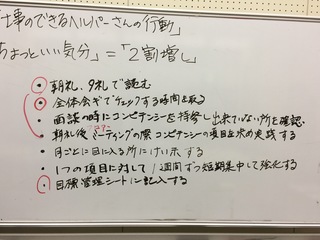 仕事のできるヘルパーさんの行動」
ちょっといい気分」=「2割増し」
・朝礼、夕礼で読む
・全体会ギでチェックする時間を取る
・面談の時にコンピテンシーを持参し出来ていない所を確認
・朝礼後ミニミーティングの際コンピテンシーの項目を決め実践する
・月ごとに目に入る所にけい示する
・1つの項目に対して1週間ずつ短期集中して強化する
・目標管理シートに記入する